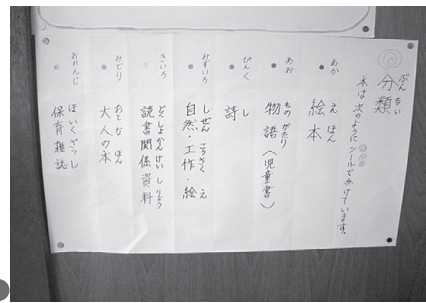 ぶんるい
分類
本は次のようにシールで分けています。
あか
えほん
絵本
あお
ものがたり
物語（児童書）
ぴんく
し
詩
みずいろ
しぜん こうさく え
自然・工作・絵
きいろ
どくしょかんけいしりょう
読書関係資料
みどり
おとな ほん
大人の本
おれんじ
ほいくざっし
保育雑誌